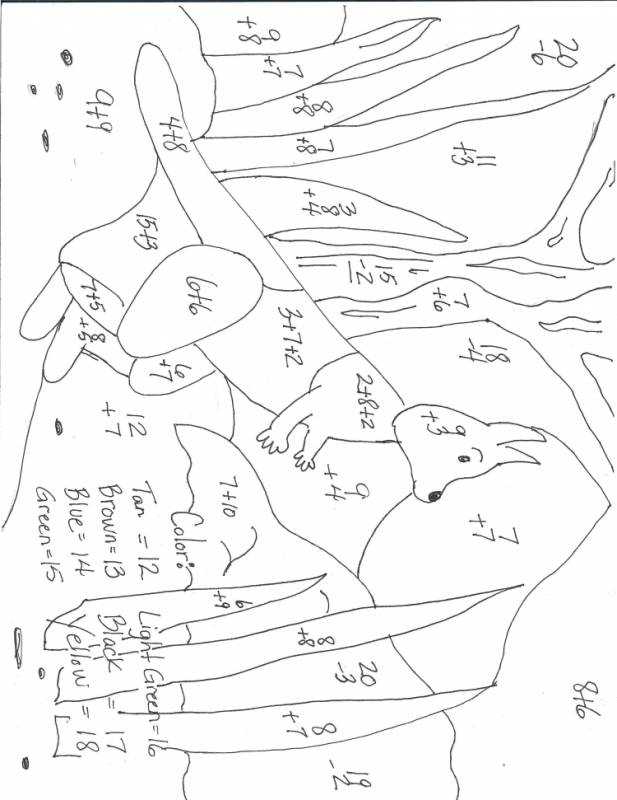 20
-6
8+6
11
+3
7
+7
18
-4
7
+6
15
-2
9
+3
2+8+2
3
8
+4
9
+4
7
+8
8
+8
7
+7
9
+8
3+7+2
8
+8
20
-3
8
+7
19
-2
7+10
6
+9
4+8
6+6
15+3
6
+7
7+5
8
+5
9+9
12
+7
Color:
Tan = 12
Brown=13
Blue=14
Green=15
Light Green=16
Black = 17
Yellow = 18